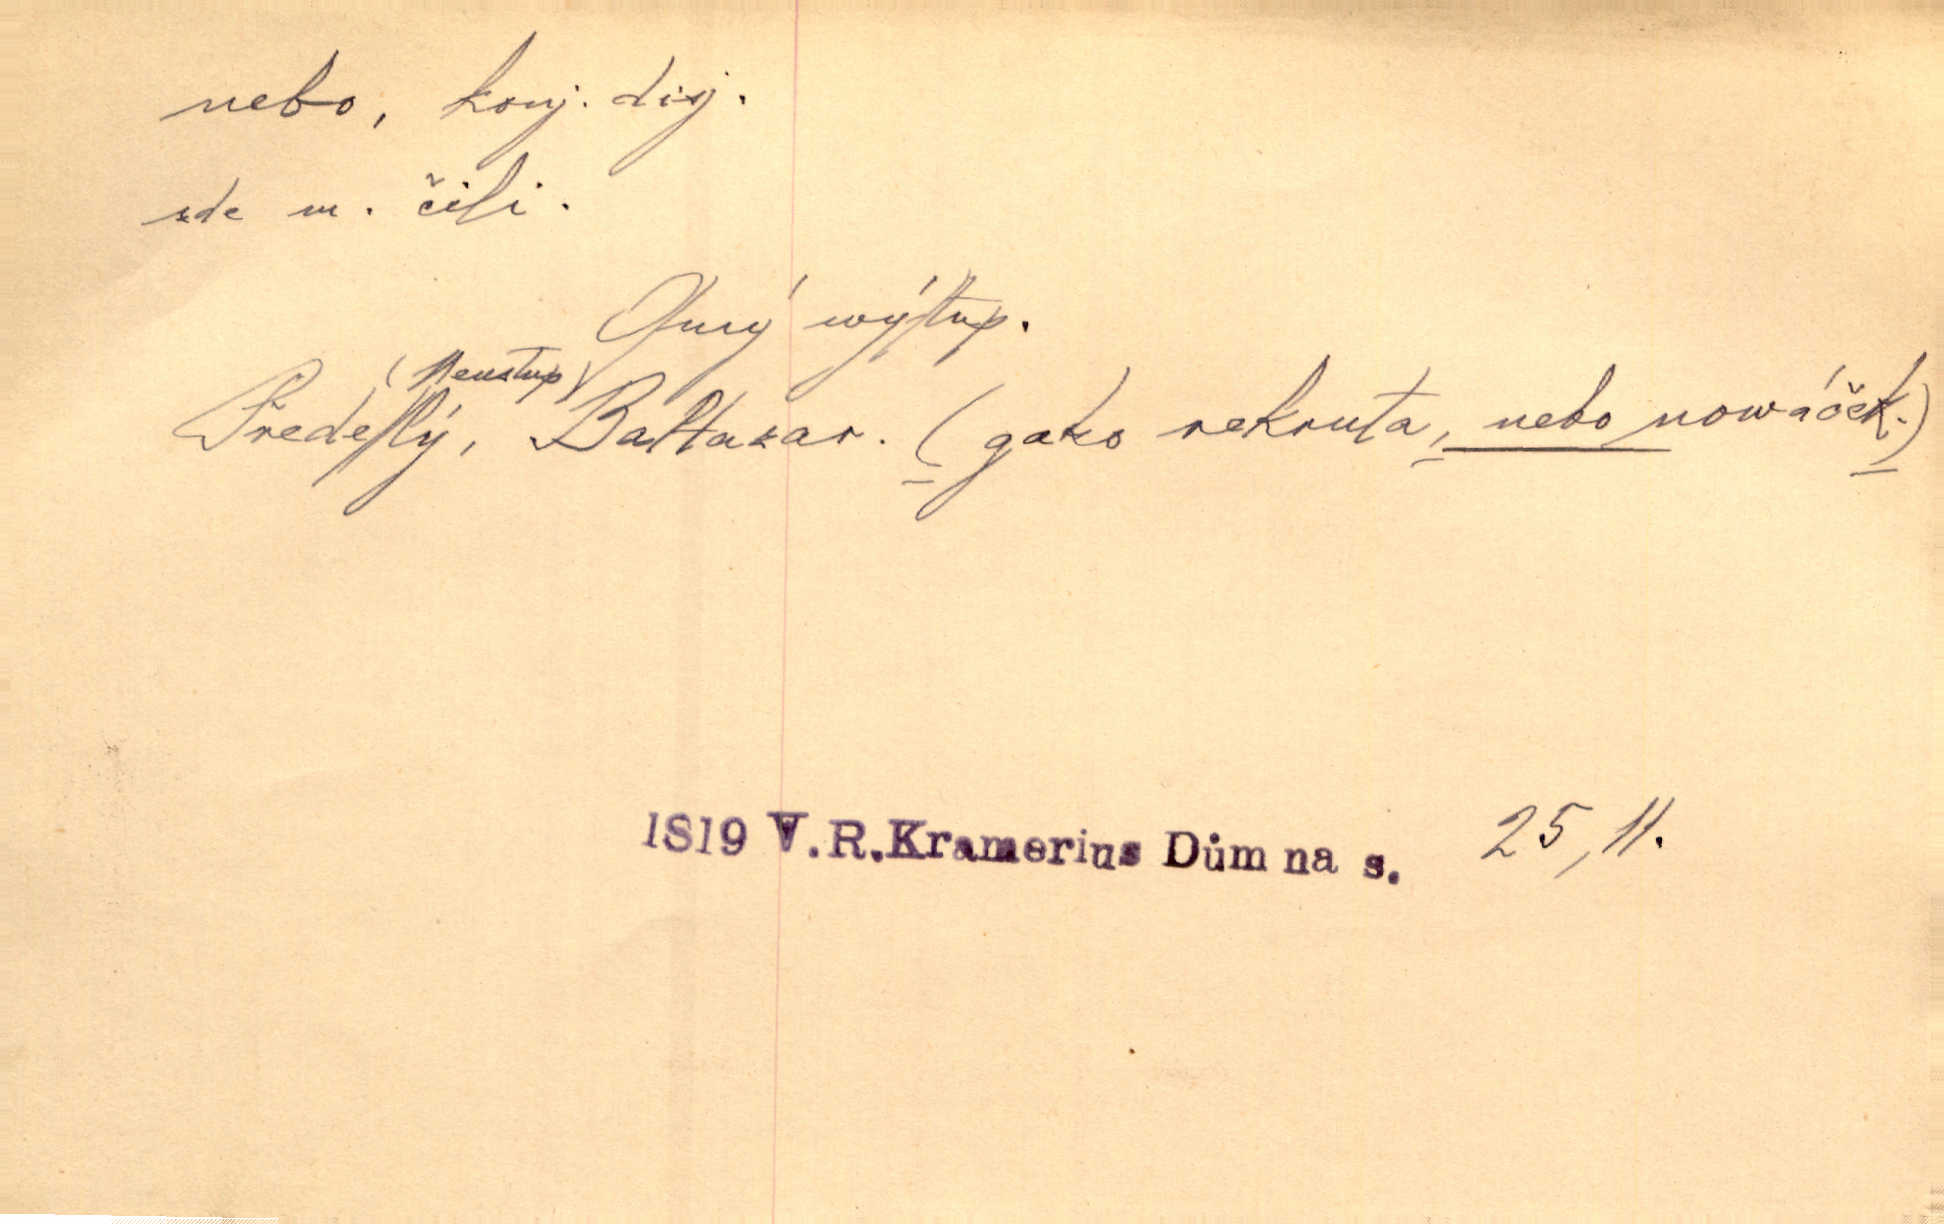 nebo, konj. disj.
zde m. čili.
Giný wýſtup.
(Neustup)
Předeſſlý, Baltazar. (gako rekruta, nebo nowáček.)
1819 V.R.Kramerius Dům na s. 25, 11.